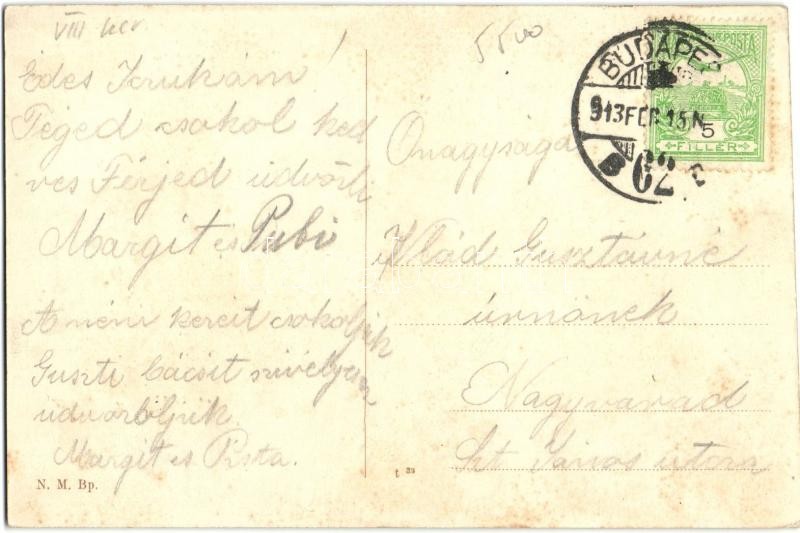 VIII ker
5500
Édes Irukám!
Téged csokol ked
ves Férjed üdvözli
Margit és Pubi
A néni kezeit csokoljuk
Guszti bácsit szivélyesen
üdvözöljük
Margit és Pista.
N. M. Bp.
BUDAPE
913 FEB 15 N 5
B 62
POSTA
FILLÉR
Onagysága
Vlád Gusztávné
úrnőnek
Nagyvárad
Szt János utca